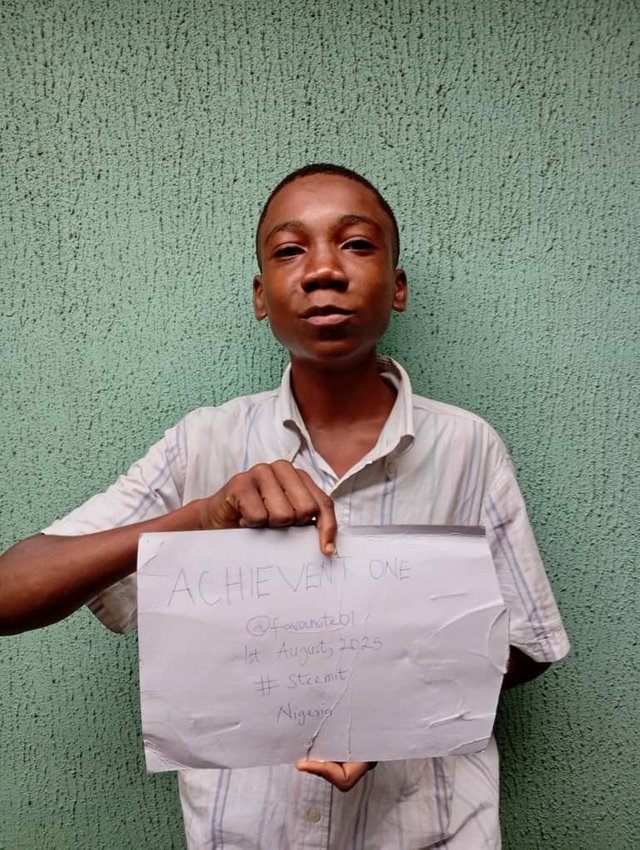 ACHIEVENT ONE
@favanuteb1
1st August, 2025
# Steemit
Nigeria